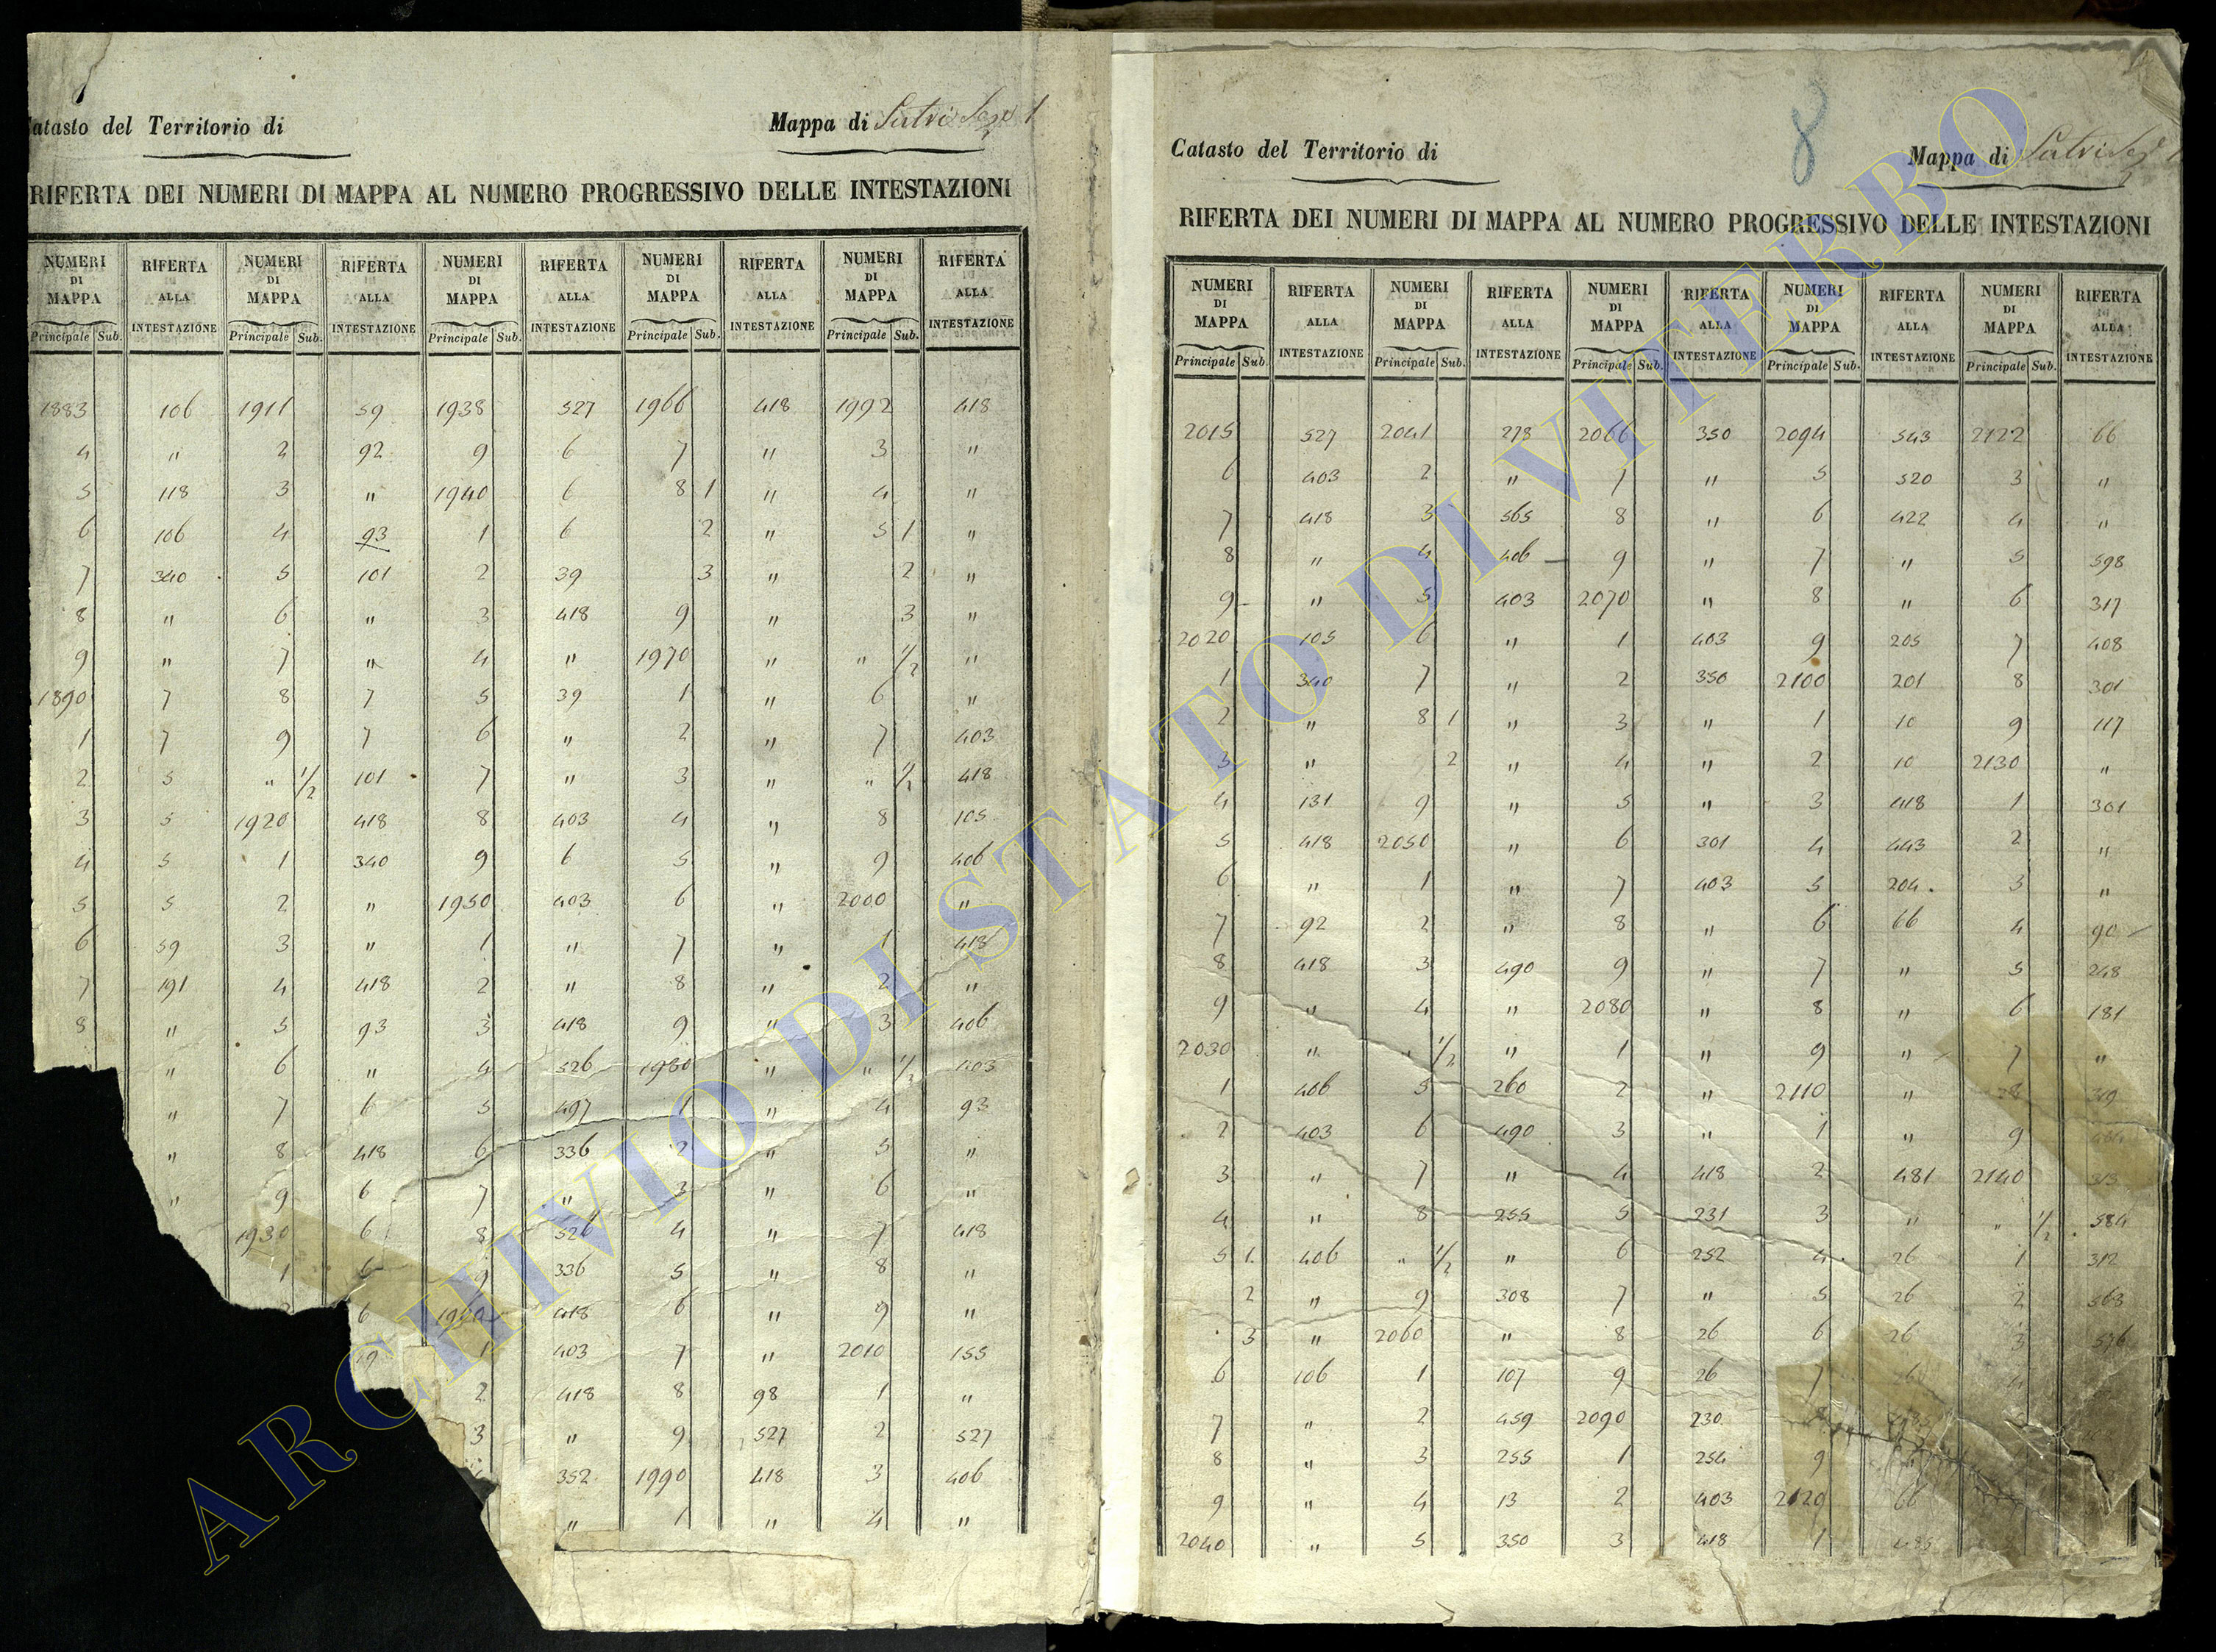 Catasto del Territorio di
Mappa di Sutri Sez 1
RIFERTA DEI NUMERI DI MAPPA AL NUMERO PROGRESSIVO DELLE INTESTAZIONI
NUMERI DI MAPPA RIFERTA ALLA INTESTAZIONE NUMERI DI MAPPA RIFERTA ALLA INTESTAZIONE NUMERI DI MAPPA RIFERTA ALLA INTESTAZIONE NUMERI DI MAPPA RIFERTA ALLA INTESTAZIONE NUMERI DI MAPPA RIFERTA ALLA INTESTAZIONE
Principale Sub. Principale Sub. Principale Sub. Principale Sub. Principale Sub.
1883 106 1911 59 1938 527 1966 418 1992 418
4 " 2 92 9 6 7 " 3 "
5 118 3 " 1940 6 8 1 " 4 "
6 106 4 93 1 6 2 " 5 1 "
7 340 5 101 2 39 3 " 2 "
8 " 6 " 3 418 9 " 3 "
9 " 7 " 4 " 1970 " " 1/2 "
1890 7 8 7 5 39 1 " 6 "
1 7 9 7 6 " 2 " 7 403
2 5 " 1/2 101 7 " 3 " " 1/2 418
3 5 1920 418 8 403 4 " 8 105
4 5 1 340 9 6 5 " 9 406
5 5 2 " 1950 403 6 " 2000 "
6 59 3 " 1 " 7 " 1 418
7 191 4 418 2 " 8 " 2 "
8 " 5 93 3 418 9 " 3 406
" 6 " 4 526 1980 " " 1/2 403
" 7 6 5 497 1 " 4 93
" 8 418 6 336 2 " 5 "
" 9 6 7 " 3 " 6 "
1930 6 8 526 4 " 7 418
1 6 9 336 5 " 8 "
6 1960 418 6 " 9 "
1 403 7 " 2010 155
2 418 8 98 1 "
3 " 9 527 2 527
352 1990 418 3 406
" 1 " 4 "
8
Catasto del Territorio di
Mappa di Sutri Sez 1
RIFERTA DEI NUMERI DI MAPPA AL NUMERO PROGRESSIVO DELLE INTESTAZIONI
NUMERI DI MAPPA RIFERTA ALLA INTESTAZIONE NUMERI DI MAPPA RIFERTA ALLA INTESTAZIONE NUMERI DI MAPPA RIFERTA ALLA INTESTAZIONE NUMERI DI MAPPA RIFERTA ALLA INTESTAZIONE NUMERI DI MAPPA RIFERTA ALLA INTESTAZIONE
Principale Sub. Principale Sub. Principale Sub. Principale Sub. Principale Sub.
2015 527 2041 278 2066 350 2094 543 2122 66
6 403 2 " 7 " 5 520 3 "
7 418 3 565 8 " 6 422 4 "
8 " 4 406 9 " 7 " 5 598
9 " 5 403 2070 " 8 " 6 317
2020 105 6 " 1 403 9 205 7 408
1 340 7 " 2 350 2100 201 8 301
2 " 8 1 " 3 " 1 10 9 117
3 " 2 " 4 " 2 10 2130 "
4 131 9 " 5 " 3 418 1 301
5 418 2050 " 6 301 4 443 2 "
6 " 1 " 7 403 5 204 3 "
7 92 2 " 8 " 6 66 4 90
8 418 3 490 9 " 7 " 5 248
9 " 4 " 2080 " 8 " 6 181
2030 " " 1/2 " 1 " 9 " 7 "
1 406 5 260 2 " 2110 " 8 319
2 403 6 490 3 " 1 " 9
3 " 7 " 4 418 2 481 2140 313
4 " 8 255 5 231 3 " " 1/2 584
5 1 406 " 1/2 " 6 252 4 26 1 312
2 " 9 308 7 " 5 26 2 568
3 " 2060 " 8 26 6 26 3 576
6 106 1 107 9 26 7
7 " 2 459 2090 230
8 " 3 255 1 254 9
9 " 4 13 2 403 2120 66
2040 " 5 350 3 418 1
ARCHIVIO DI STATO DI VITERBO